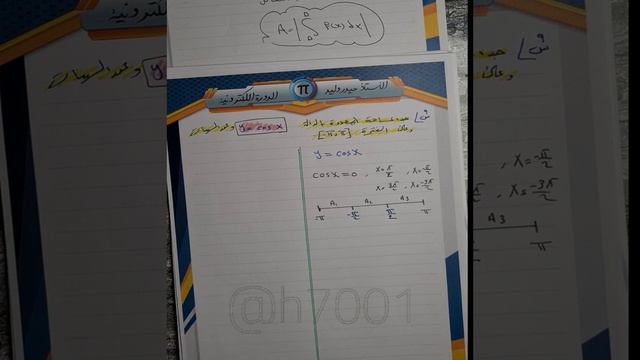 A = | ∫ f(x) dx |
الأستاذ حيدر وليد π الدورة الالكترونية
س/ جد المساحة المحددة بالدالة y = cos x وعلى الفترة [-π, π] ومحور السينات
y = cosx
cosx = 0 , x = π/2 , x = -π/2
x = 3π/2 , x = -3π/2
A₁ A₂ A₃
-π -π/2 π/2 π
@h7001